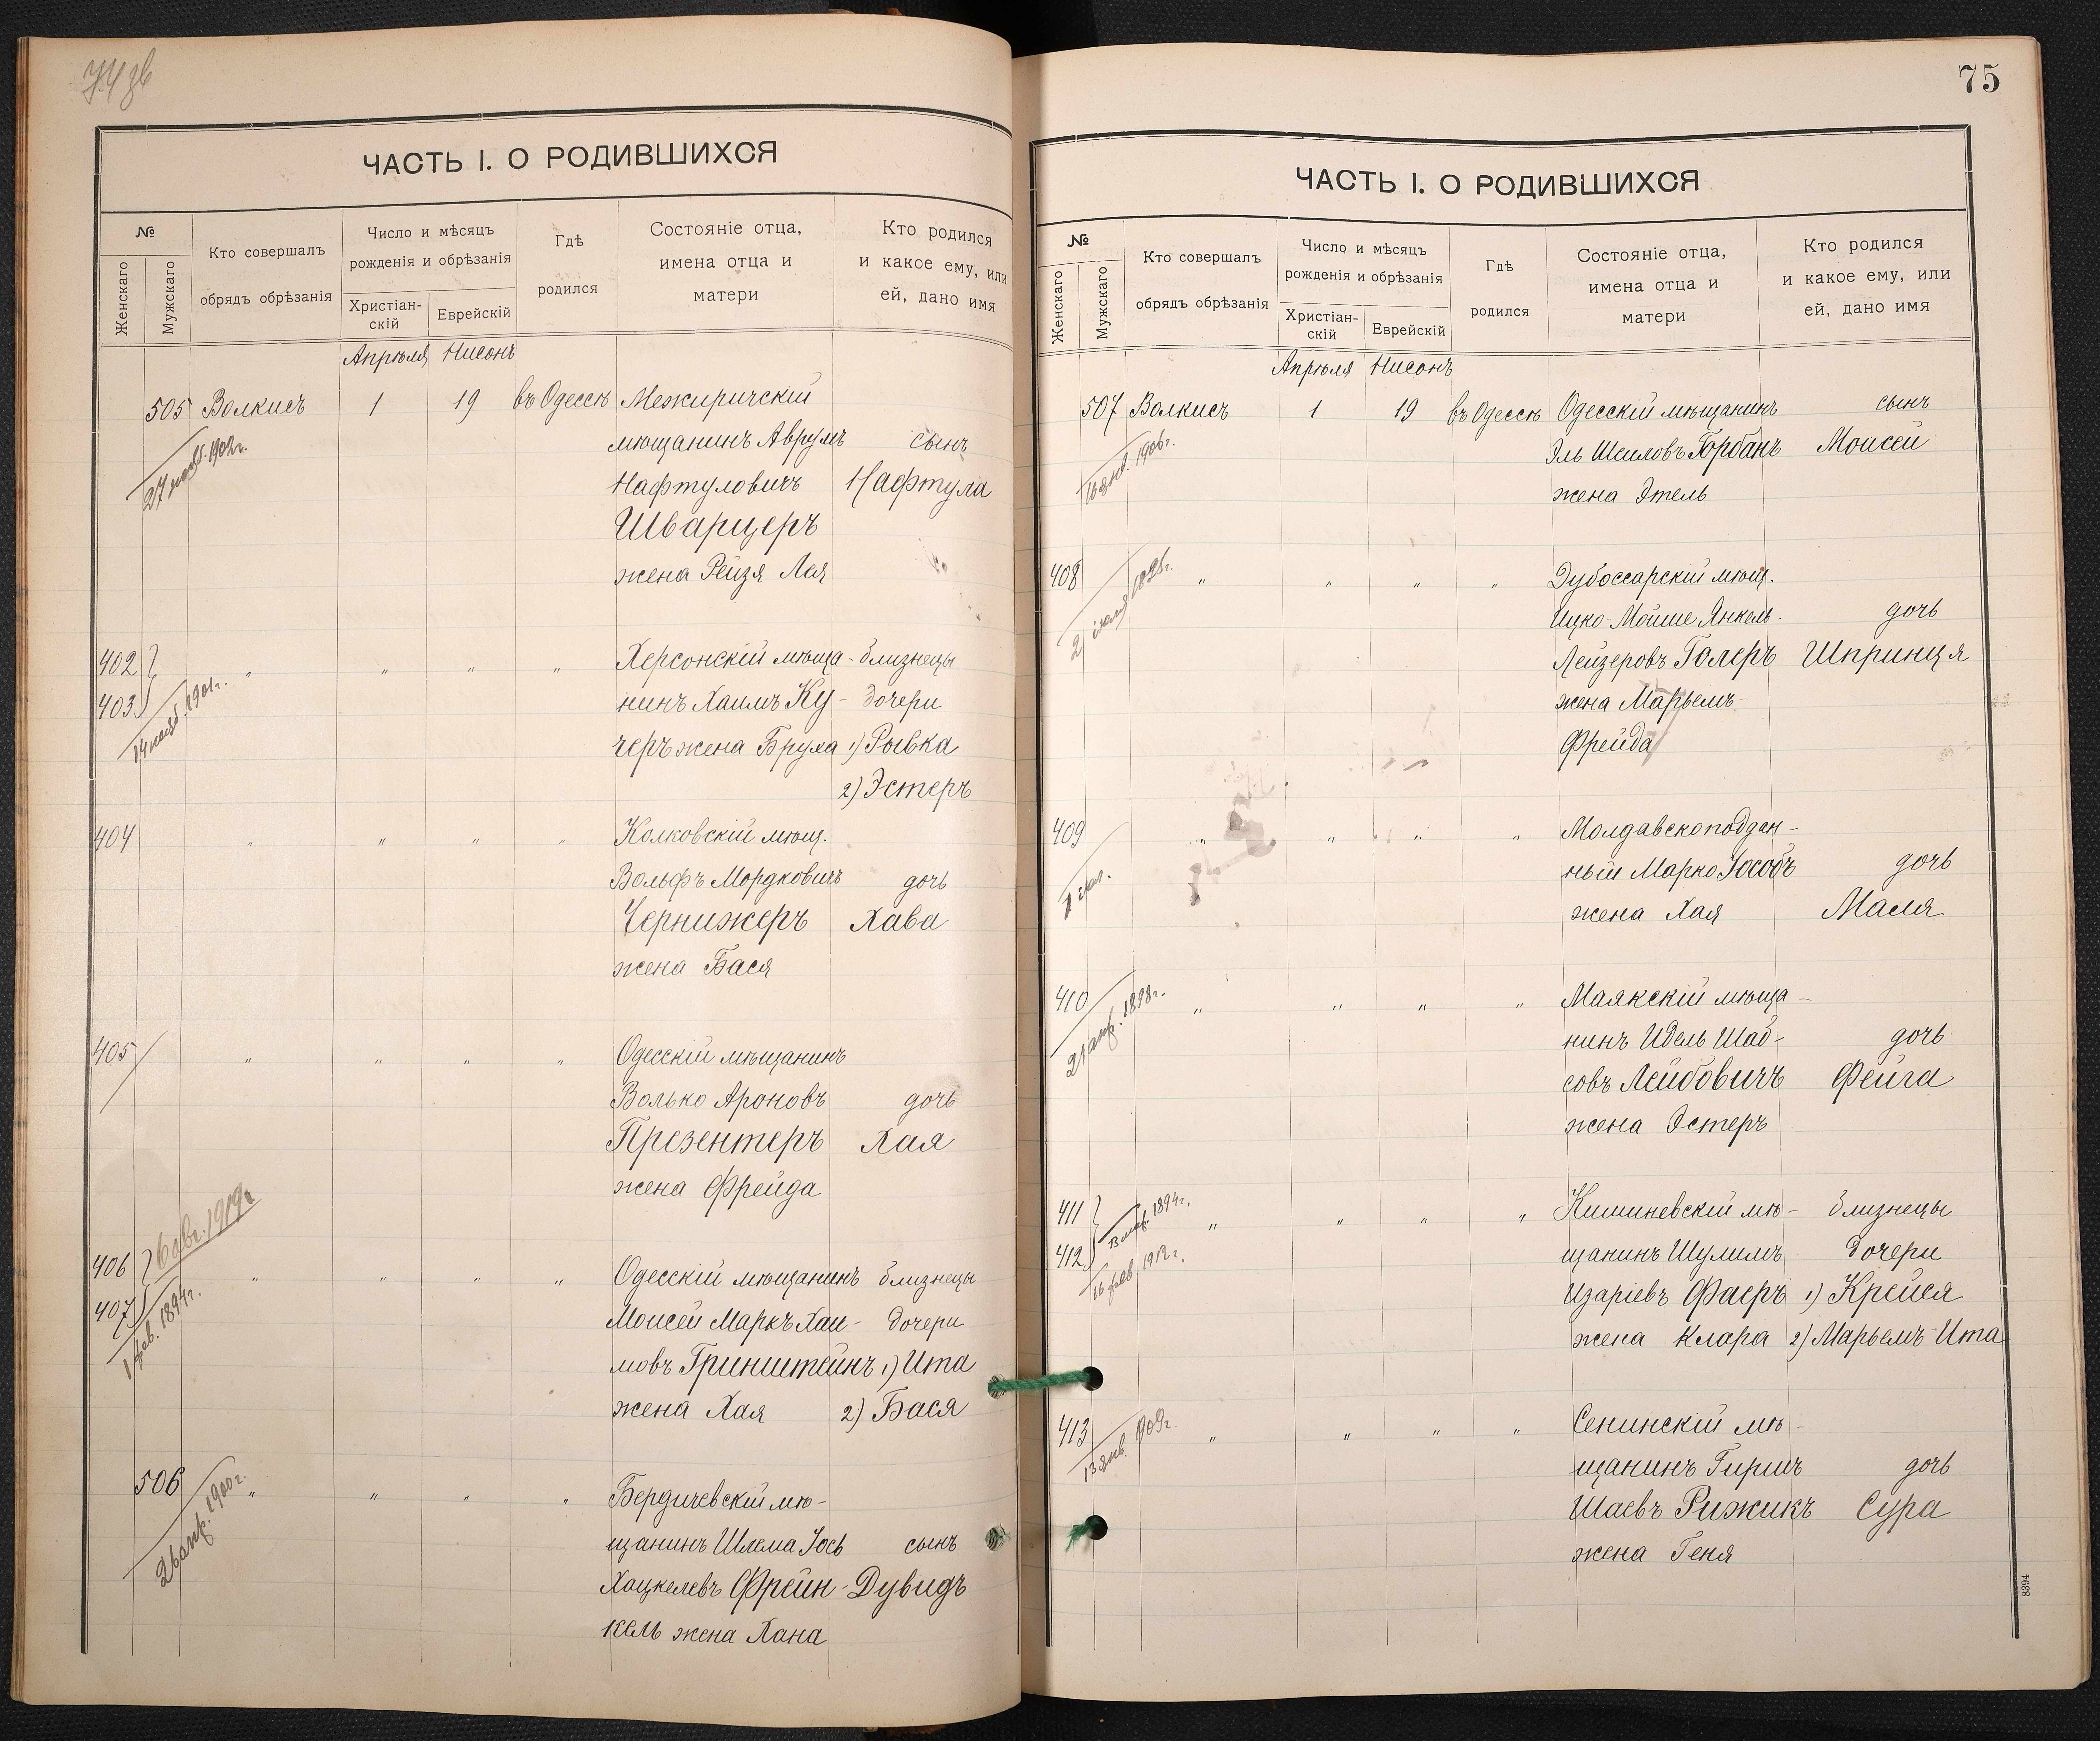 74 об
ЧАСТЬ I. О РОДИВШИХСЯ
№
Женскаго
Мужскаго
Кто совершалъ
обрядъ обрѣзанія
Число и мѣсяцъ
рожденія и обрѣзанія
Христіан-
скій
Еврейскій
Гдѣ
родился
Состояніе отца,
имена отца и
матери
Кто родился
и какое ему, или
ей, дано имя
Апрѣля Нисонъ
505 Волкисъ 1 19 въ Одессѣ Межиричскій
мѣщанинъ Аврумъ сынъ
27 1902г.
Нафтуловичъ Нафтула
Шварцеръ
жена Рейзя Лея
402 " " " " Херсонскій мѣща- близнецы
403 нинъ Хаимъ Ку- дочери
14 нояб. 1901г.
черъ жена Бруха 1) Рывка
2) Эстеръ
404 " " " " Колковскій мѣщ.
Вольфъ Мордковичъ дочь
Чернижеръ Хава
жена Бася
405 " " " " Одесскій мѣщанинъ
Волько Ароновъ дочь
Презентеръ Хая
жена Фрейда
6 авг. 1919г
406 " " " " Одесскій мѣщанинъ близнецы
407 Моисей Маркъ Хаи- дочери
1 фев. 1894г.
мовъ Гринштейнъ 1) Ита
жена Хая 2) Бася
506 " " " " Бердичевскій мѣ-
26 апр. 1900г.
щанинъ Шлема Іось сынъ
Хацкелевъ Френ- Дувидъ
кель жена Хана
75
ЧАСТЬ I. О РОДИВШИХСЯ
№
Женскаго
Мужскаго
Кто совершалъ
обрядъ обрѣзанія
Число и мѣсяцъ
рожденія и обрѣзанія
Христіан-
скій
Еврейскій
Гдѣ
родился
Состояніе отца,
имена отца и
матери
Кто родился
и какое ему, или
ей, дано имя
Апрѣля Нисонъ
507 Волкисъ 1 19 въ Одессѣ Одесскій мѣщанинъ сынъ
16 янв. 1906г.
Эль Шеиловъ Горбанъ Моисей
жена Этель
408 " " " " Дубоссарскій мѣщ.
2 1896г.
Ицко-Мойше Янкель- дочь
Лейзеровъ Голеръ Шпринця
жена Марьемъ-
Фрейда
409 " " " " Молдавскоподдан-
ный Марко дочь
жена Хая Маля
410 " " " " Маякскій мѣща-
21 апр. 1898г.
нинъ Идель Шаб- дочь
совъ Лейбовичъ Фейга
жена Эстеръ
411 " " " " Кишиневскій мѣ- близнецы
1894г.
412 щанинъ Шулимъ дочери
16 фев. 1912г.
Изаріевъ Фаеръ 1) Крейся
жена Клара 2) Марьемъ Ита
413 " " " " Сенинскій мѣ-
13 янв. 1909г.
щанинъ Гиршъ дочь
Шаевъ Рижикъ Сура
жена Геня
8394